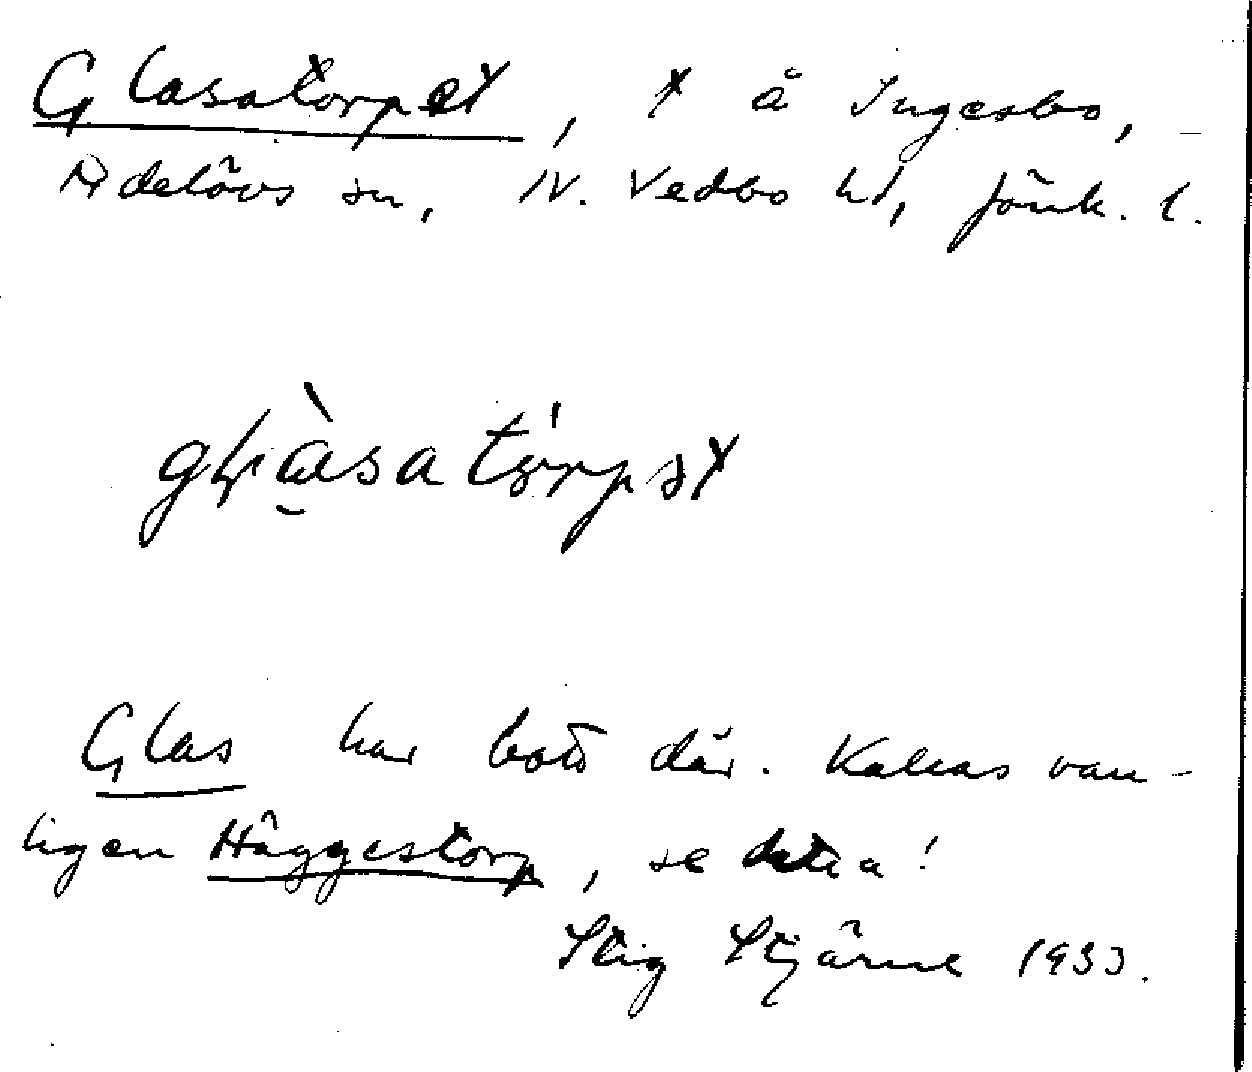 Glasatorpet, x å Ingesbo,
Adelövs sn, N. Vedbo hd, Jönk. l.
Glas har bott där. Kallas van-
ligen Häggestorp, se detta!
Stig Stjärne 1933.